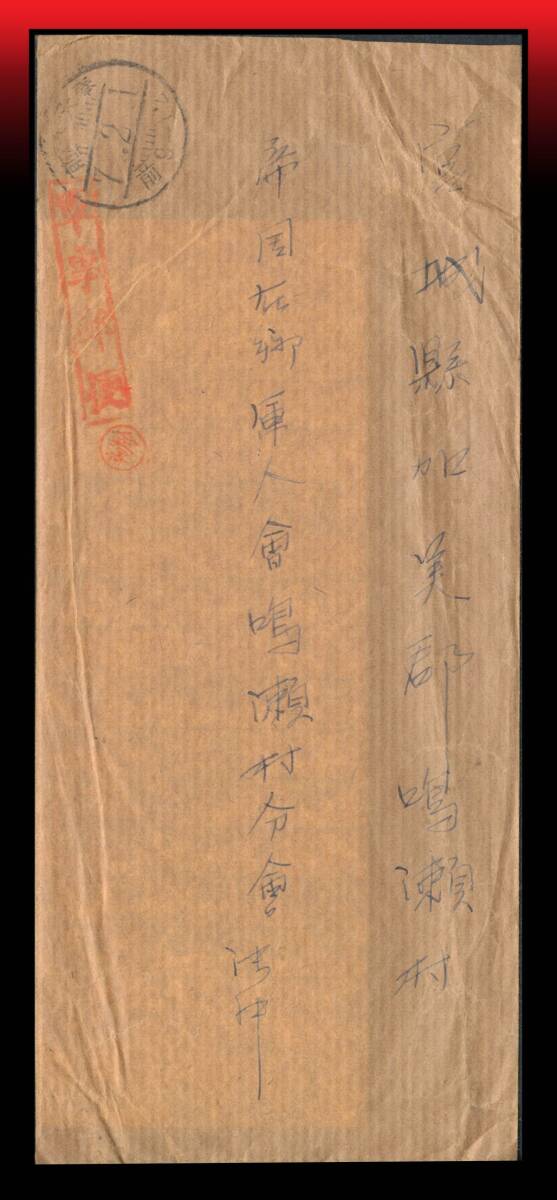 宮城縣加美郡鳴瀬村
帝国在郷軍人會鳴瀬村分會御中
軍事郵便
7.2.1